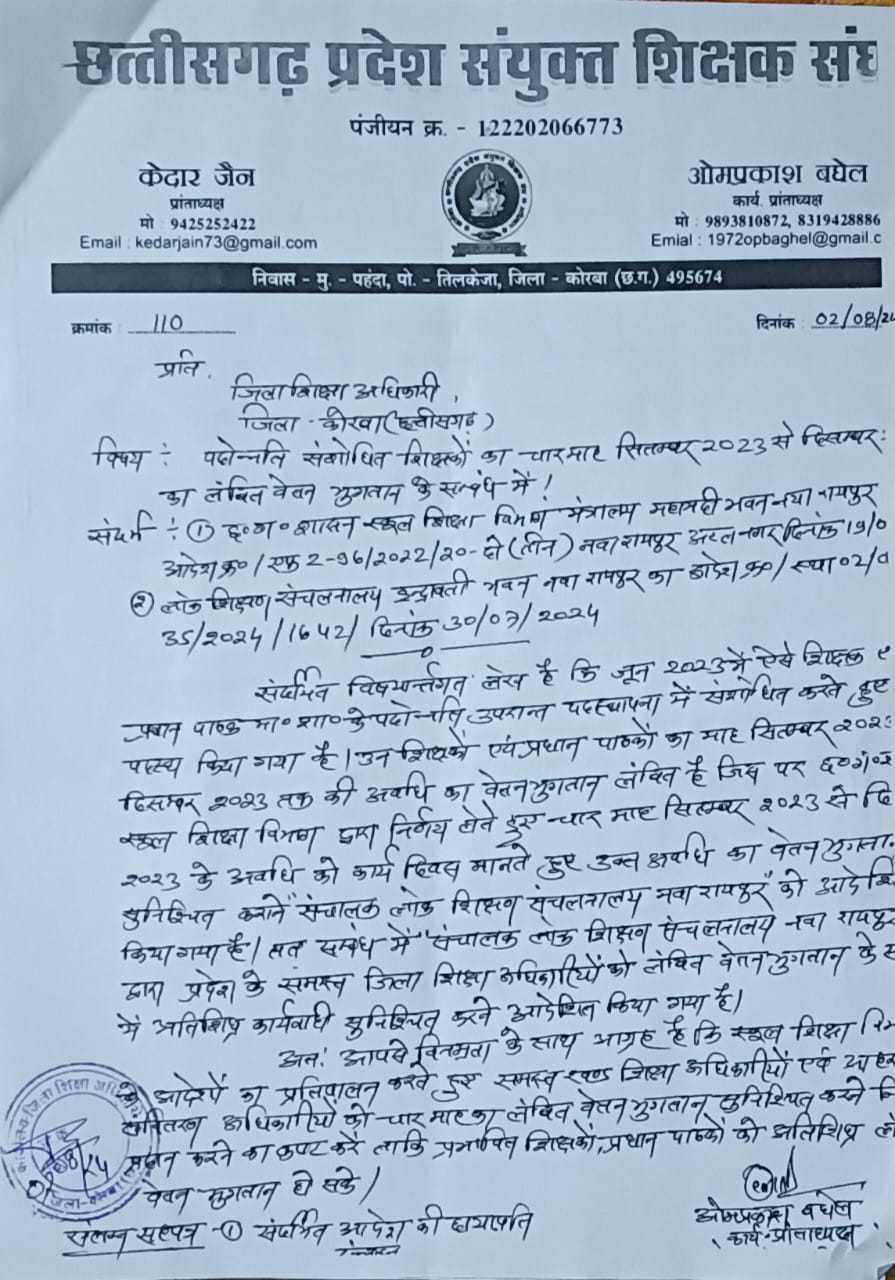 छत्तीसगढ़ प्रदेश संयुक्त शिक्षक संघ
पंजीयन क्र. - 122202066773
केदार जैन
प्रांताध्यक्ष
मो : 9425252422
Email : kedarjain73@gmail.com
ओमप्रकाश बघेल
कार्य. प्रांताध्यक्ष
मो : 9893810872, 8319428886
Emial : 1972opbaghel@gmail.c
निवास - मु. - पहंदा, पो. - तिलकेजा, जिला - कोरबा (छ.ग.) 495674
क्रमांक : 110
दिनांक : 02/08/24
प्रति,
जिला शिक्षा अधिकारी,
जिला - कोरबा (छत्तीसगढ़)
विषय : पदोन्नति संशोधित शिक्षकों का चार माह सितम्बर 2023 से दिसम्बर
का लंबित वेतन भुगतान के सम्बंध में !
संदर्भ : ① छ०ग० शासन स्कूल शिक्षा विभाग मंत्रालय महानदी भवन नया रायपुर
आदेश क्र०/एफ 2-96/2022/20-दो (तीन) नवा रायपुर अटल नगर दिनांक 19/0
② लोक शिक्षण संचलनालय इन्द्रावती भवन नवा रायपुर का आदेश क्र०/स्था 02/
35/2024/1642/ दिनांक 30/07/2024
संदर्भित विषयान्तर्गत लेख है कि जून 2023 में ऐसे शिक्षक
प्रधान पाठक मा०शा० के पदोन्नति उपरान्त पदस्थापना में संशोधित करते हुए
पदस्थ किया गया है। उन शिक्षकों एवं प्रधान पाठकों का माह सितम्बर 202
दिसम्बर 2023 तक की अवधि का वेतन भुगतान लंबित है जिस पर छ०ग०
स्कूल शिक्षा विभाग द्वारा निर्णय लेते हुए चार माह सितम्बर 2023 से दि
2023 के अवधि को कार्य दिवस मानते हुए उक्त अवधि का वेतन भुगता
सुनिश्चित कराने "संचालक लोक शिक्षण संचलनालय नवा रायपुर" को आदेशि
किया गया है। सम्बंध में "संचालक लोक शिक्षण संचलनालय नवा रायपुर
द्वारा प्रदेश के समस्त जिला शिक्षा अधिकारियों को लंबित वेतन भुगतान के स
में अतिशिघ्र कार्यवाही सुनिश्चित करने आदेशित किया गया है।
अतः आपसे विनम्रता के साथ आग्रह है कि स्कूल शिक्षा विभ
के आदेशों का प्रतिपालन करते हुए समस्त खण्ड शिक्षा अधिकारियों एवं आहर
संवितरण अधिकारियों को चार माह का लंबित वेतन भुगतान सुनिश्चित करने नि
प्रदान करने का कष्ट करें ताकि प्रभावित शिक्षकों, प्रधान पाठकों को अतिशिघ्र लं
वेतन भुगतान हो सके।
संलग्न सहपत्र - ① संदर्भित आदेश की छायाप्रति
ओमप्रकाश बघेल
कार्य. प्रांताध्यक्ष